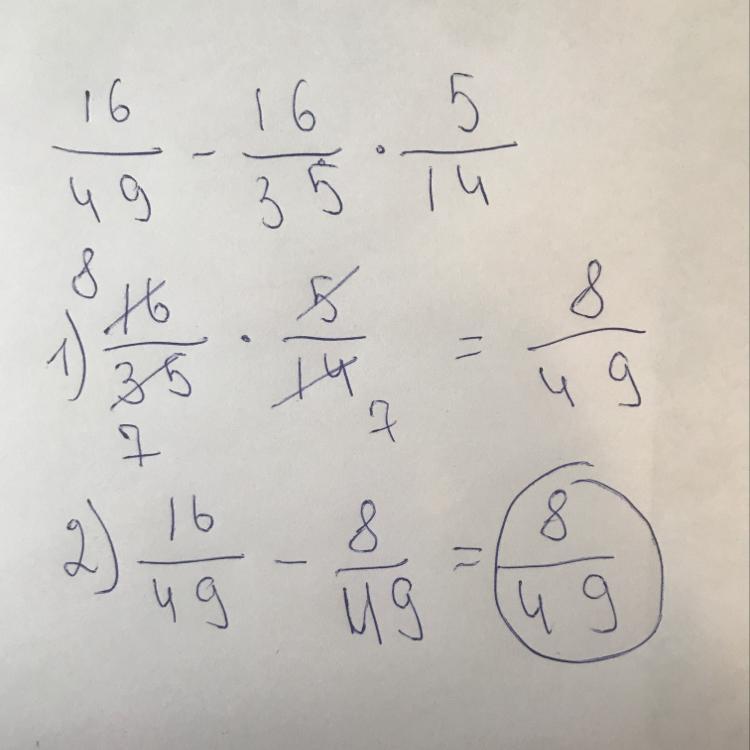 16/49 - 16/35 · 5/14
1) 16/35 · 5/14 = 8/49
8
7
7
2) 16/49 - 8/49 = 8/49